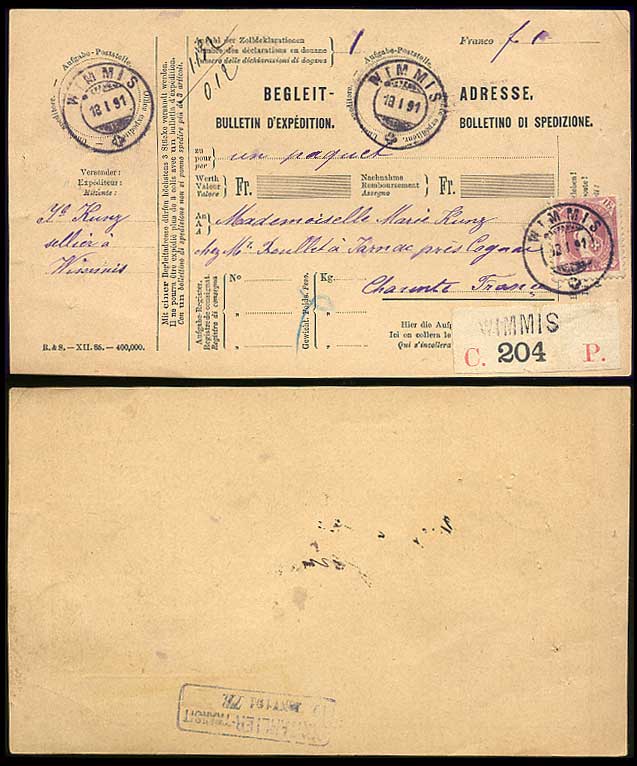 Aufgabe-Poststelle.
Office expéditeur.
WIMMIS
18 I 91
Versender:
Expéditeur:
Mittente:
Kunz
sellier à
Wimmis
R. & S. — XII. 85. — 400,000.
Mit einer Begleitadresse dürfen höchstens 3 Stücke versandt werden.
Il ne pourra être expédié plus de 3 colis avec un bulletin d'expédition.
Con un bollettino di spedizione non si ponno spedire più di 3 articoli.
Anzahl der Zolldeklarationen
Nombre des déclarations en douane
Numero delle dichiarazioni di dogana
1
Franco
012
Aufgabe-Poststelle.
WIMMIS
18 I 91
BEGLEIT-ADRESSE,
BULLETIN D'EXPÉDITION. BOLLETTINO DI SPEDIZIONE.
zu
pour
per
un paquet
Werth
Valeur
Valore
Fr.
Nachnahme
Remboursement
Assegno
Fr.
An
À
A
Mademoiselle Marie Kunz
chez Mr. à Jarnac près Cognac
Charente France
WIMMIS
18 I 91
Aufgabe-Register.
Registre de consignat.
Registro di consegna.
No
Gewicht. Poids. Peso.
Kg.
Hier die
Ici on collera
Qui s'incollerà
WIMMIS
C. 204 P.
TRANSIT